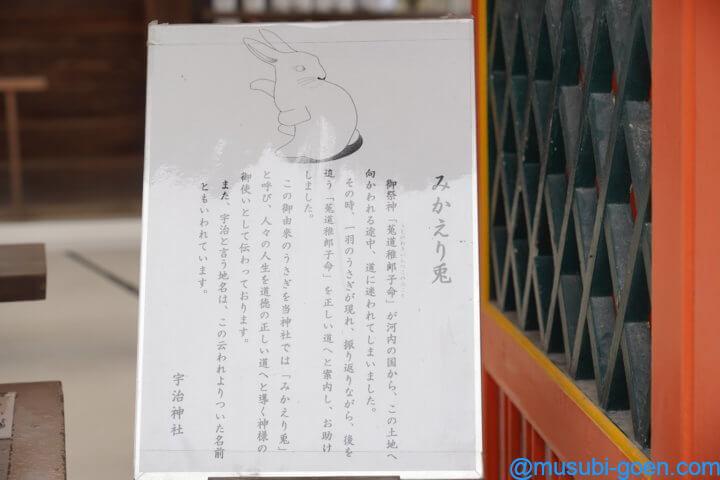 みかえり兎
御祭神「菟道稚郎子命」が河内の国から、この土地へ
向かわれる途中、道に迷われてしまいました。
その時、一羽のうさぎが現れ、振り返りながら、後を
追う「菟道稚郎子命」を正しい道へと案内し、お助け
しました。
この御由来のうさぎを当神社では「みかえり兎」
と呼び、人々の人生を道徳の正しい道へと導く神様の
御使いとして伝わっております。
また、宇治と言う地名は、この云われよりついた名前
ともいわれています。
宇治神社
@musubi-goen.com